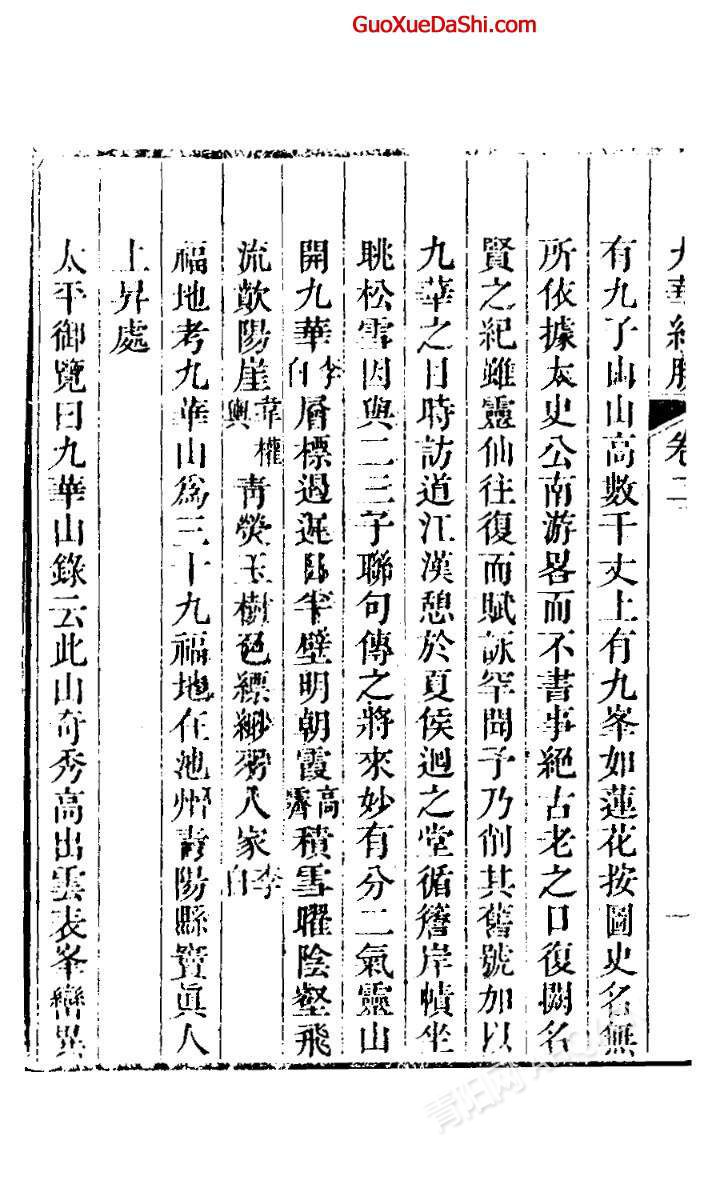 GuoXueDaShi.com
九華紀勝 卷二 一
有九子山山高數千丈上有九峯如蓮花按圖史名無
所依據太史公南游畧而不書事絕古老之口復闕名
賢之紀雖靈仙往復而賦詠罕聞予乃削其舊號加以
九華之目時訪道江漢憩於夏侯迴之堂循簷岸幘坐
眺松雪因與二三子聯句傳之將來妙有分二氣靈山
開九華李白層標遏遲日半壁明朝霞高霽積雪曜陰壑飛
流歕陽崖韋權輿青熒玉樹色縹緲羽人家李白
福地考九華山爲三十九福地在池州青陽縣竇眞人
上昇處
太平御覽曰九華山錄云此山奇秀高出雲表峯巒異
青阳网